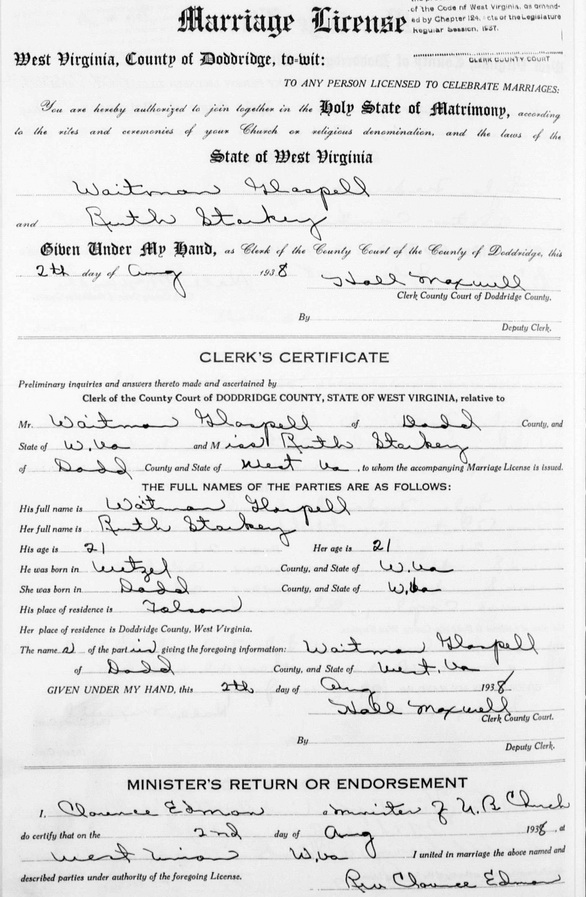 Marriage License
of the Code of West Virginia, as amend-
ed by Chapter 124, Acts of the Legislature
Regular Session, 1937.
CLERK COUNTY COURT
West Virginia, County of Doddridge, to-wit:
TO ANY PERSON LICENSED TO CELEBRATE MARRIAGES:
You are hereby authorized to join together in the Holy State of Matrimony, according
to the rites and ceremonies of your Church or religious denomination, and the laws of the
State of West Virginia
Waitman Glaspell
and Ruth Starkey
Given Under My Hand, as Clerk of the County Court of the County of Doddridge, this
2th day of Aug 1938 Hall Maxwell
Clerk County Court of Doddridge County.
By
Deputy Clerk.
CLERK'S CERTIFICATE
Preliminary inquiries and answers thereto made and ascertained by
Clerk of the County Court of DODDRIDGE COUNTY, STATE OF WEST VIRGINIA, relative to
Mr. Waitman Glaspell of Dodd County, and
State of W.Va and Miss Ruth Starkey
of Dodd County and State of West Va, to whom the accompanying Marriage License is issued.
THE FULL NAMES OF THE PARTIES ARE AS FOLLOWS:
His full name is Waitman Glaspell
Her full name is Ruth Starkey
His age is 21 Her age is 21
He was born in Wetzel County, and State of W.Va
She was born in Dodd County, and State of W.Va
His place of residence is Folsom
Her place of residence is Doddridge County, West Virginia.
The names of the parties giving the foregoing information: Waitman Glaspell
of Dodd County, and State of West. Va
GIVEN UNDER MY HAND, this 2th day of Aug 1938
Hall Maxwell
Clerk County Court.
By
Deputy Clerk.
MINISTER'S RETURN OR ENDORSEMENT
I, Clarence Edman a minister of U.B. Church
do certify that on the 2nd day of Aug 1938, at
West Union W.Va I united in marriage the above named and
described parties under authority of the foregoing License.
Rev Clarence Edman